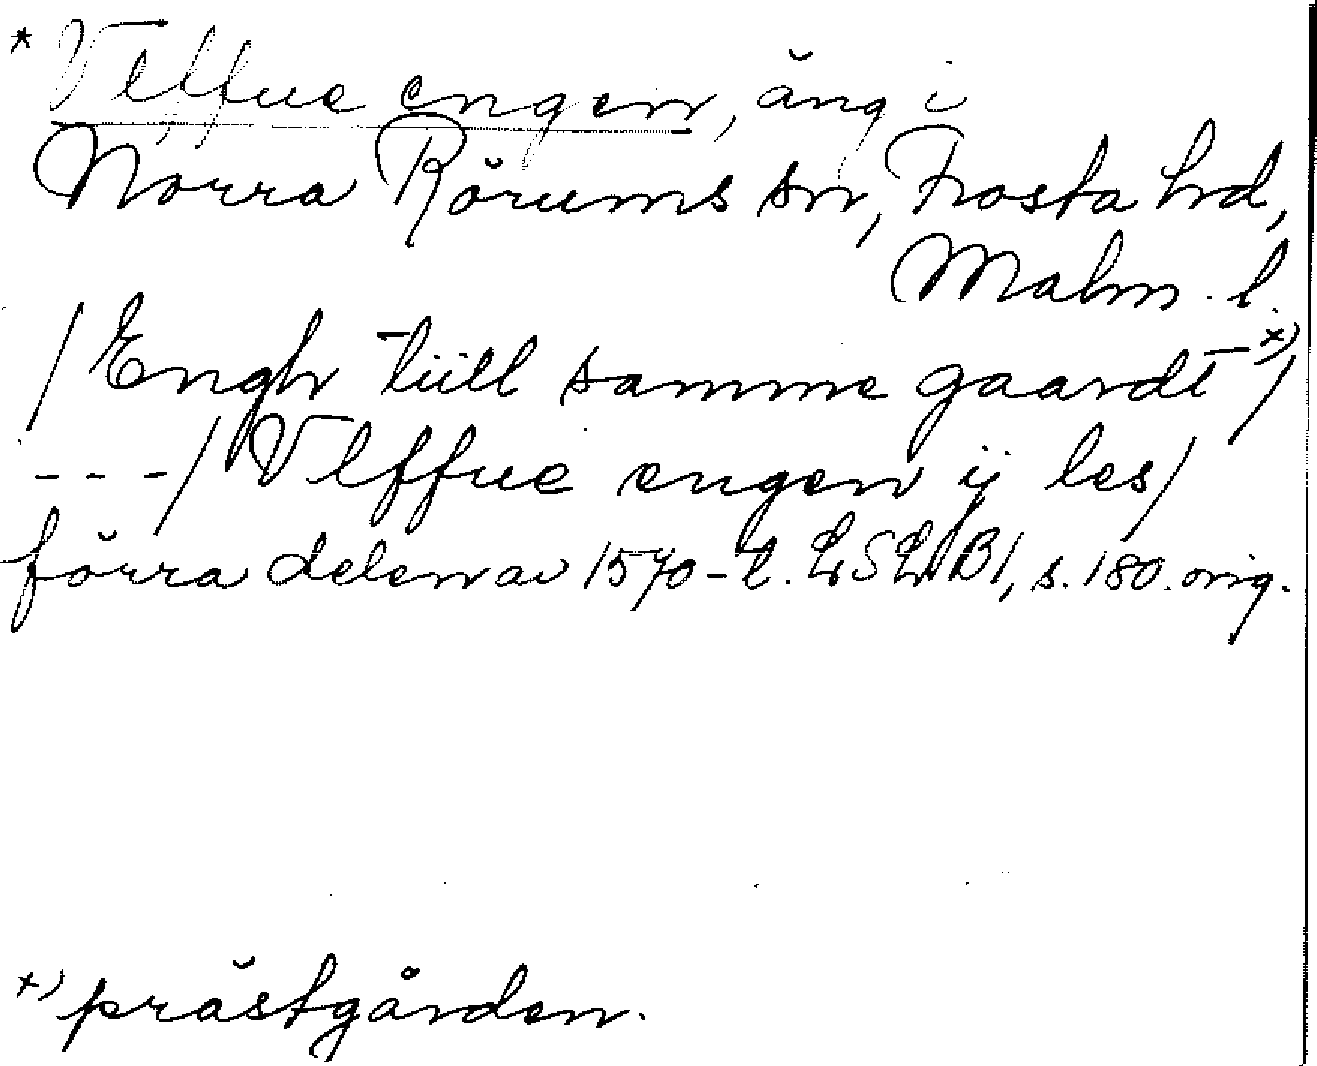 * Vlffue engen, äng i
Norra Rörums sn, Frosta hd,
Malm. l.
/ Engh tiill samme gaardt x) /
- - - / Vlffue engen ij les /
förra delen av 1570-t. LSLB1, s. 180. orig.
x) prästgården.